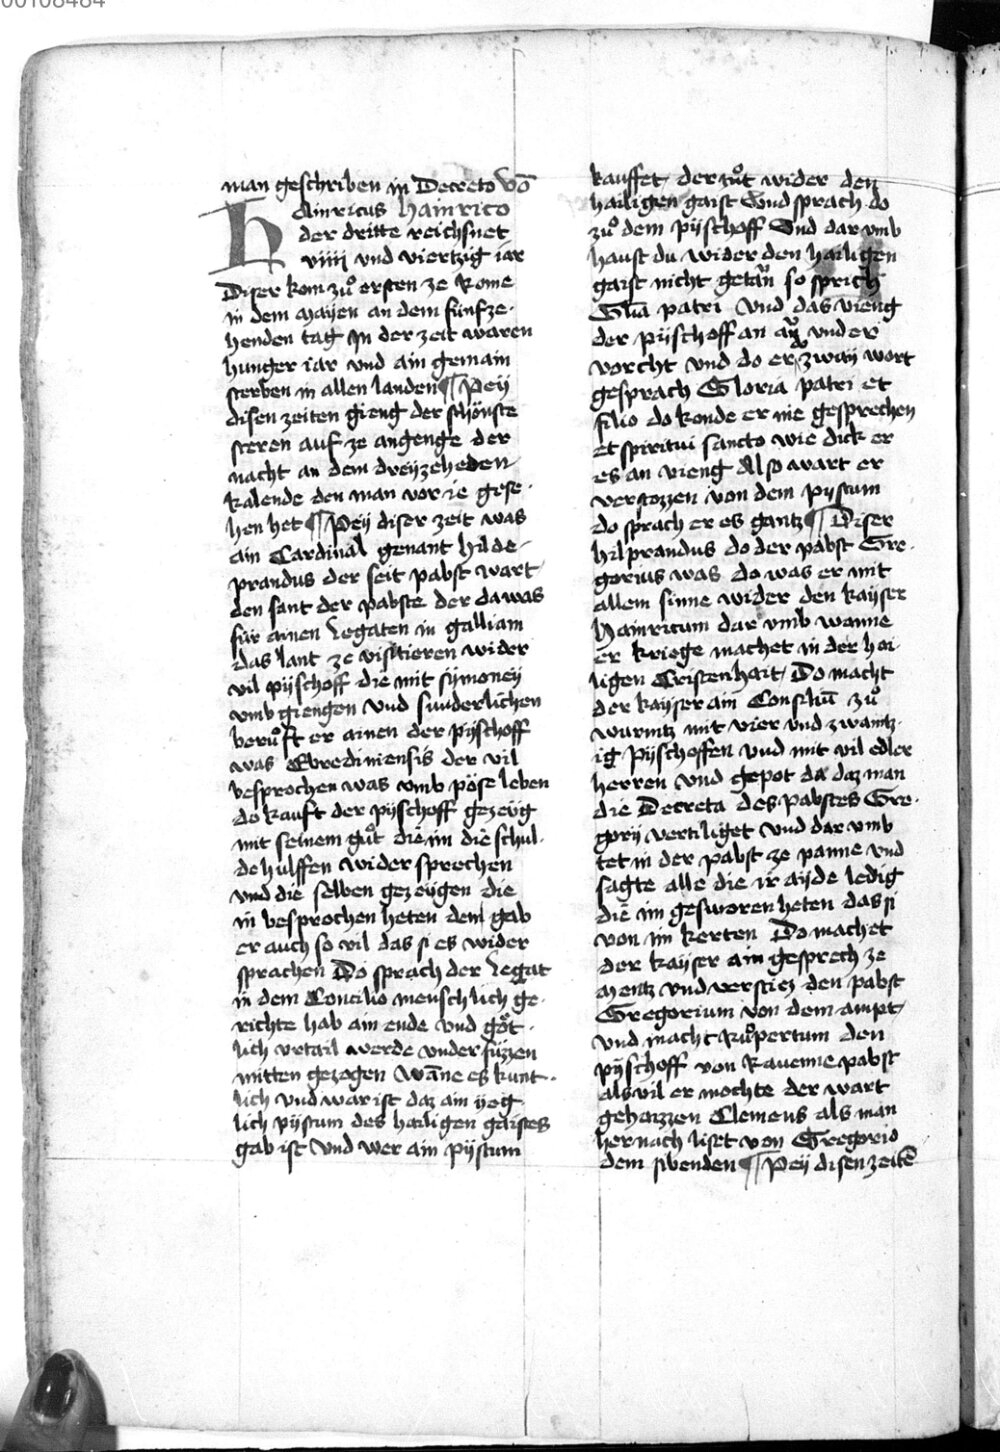 00108484
man geschriben in Decreto Vō
Hainricus Hainrico
der dritte reichsnet
viiij vnd viertzig iar
Diser kom zuͦ ersten ze Rome
in dem Mayen an dem funfze-
henden tag In der zeit waren
hunger iar vnd ain gemain
sterben in allen landen ¶ Peÿ
disen zeiten gieng der schönste
steren auf ze angenge der
nacht an dem dreÿzeheden
kalende den man vor ie gese-
hen het ¶ Peÿ diser zeit was
ain Cardinal genant Hilde-
prandus der seit pabst wart
den sant der pabste der da was
für ainen Legaten in galliam
das lant ze visitieren wider
vil pÿschoff die mit sÿmoneÿ
vmb giengen vnd sunderlichen
beruͦft er ainen der pÿschoff
was Ebrediniensis der vil
besprochen was vmb pöse leben
do kauft der pÿschoff gezeüg
mit seinem guͦt die im die schul-
de hulffen wider sprechen
vnd die selben gezeügen die
in besprochen heten dem gab
er auch so vil das si es wider
sprachen Do sprach der Legat
in dem Concilio menschlich ge-
richte hab ain ende vnd göt-
lich vrtail werde vnder füzzen
mitten gezogen Wāne es kunt-
lich vnd war ist daz ain yeg-
lich pÿstum des hailigen gaistes
gab ist vnd wer ain pÿstum
kauffet der tuͦt wider den
hailigen gaist Vnd sprach do
zuͦ dem pÿschoff Vnd dar vmb
haust du wider den hailigen
gaist nicht getan so sprich
Glīa patri Vnd das vieng
der pÿschoff an vnd er
vorcht vnd do er zwaÿ wort
gesprach Gloria patri et
filio do konde er nie gesprechen
et spiritui sancto wie dick er
es an vieng Also wart er
verstozzen von dem pystum
do sprach er es gantz ¶ Diser
hilprandus do der pabst Gre-
gorius was do was er mit
allem sinne wider den kaÿser
Hainricum dar vmb wanne
er kriege machet in der hei-
ligen Cristenhait Do macht
der kaÿser ain Consiliū zuͦ
wurmtz mit vier vnd zwaintz-
ig Pÿschoffen vnd mit vil edler
herren vnd gepot da daz man
die Decreta des pabstes Gre-
gorij vertiliget Vnd dar vmb
tet in der pabst ze panne vnd
sagte alle die ir aÿde ledig
die im gesworen heten das si
von im kerten Do machet
der kaÿser ain gesprech ze
Mentz vnd verstiez den pabst
Gregorium von dem ampt
vnd macht Ruͦpertum den
pÿschoff von Rauenne pabst
als vil er mochte der wart
gehaizzen Clemens als man
hernach liset von Gregorio
dem sibenden ¶ Peÿ disen zeitē